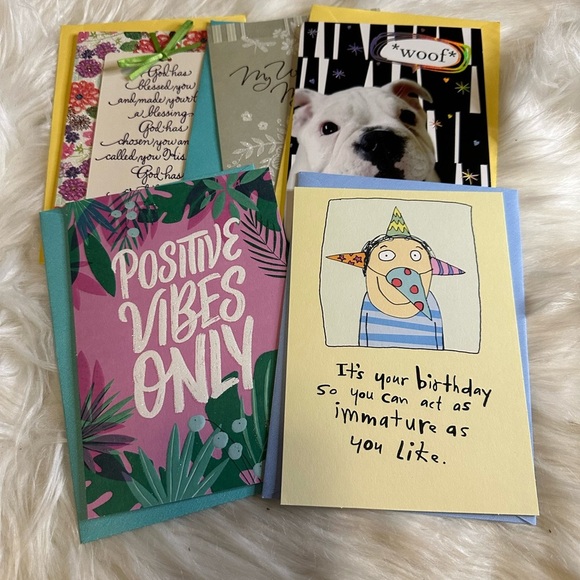 God has
blessed you
and made your
a blessing
God has
chosen you an
called you His
God has
My W
*woof*
POSITIVE
VIBES
ONLY
It's your birthday
so you can act as
immature as
you like.